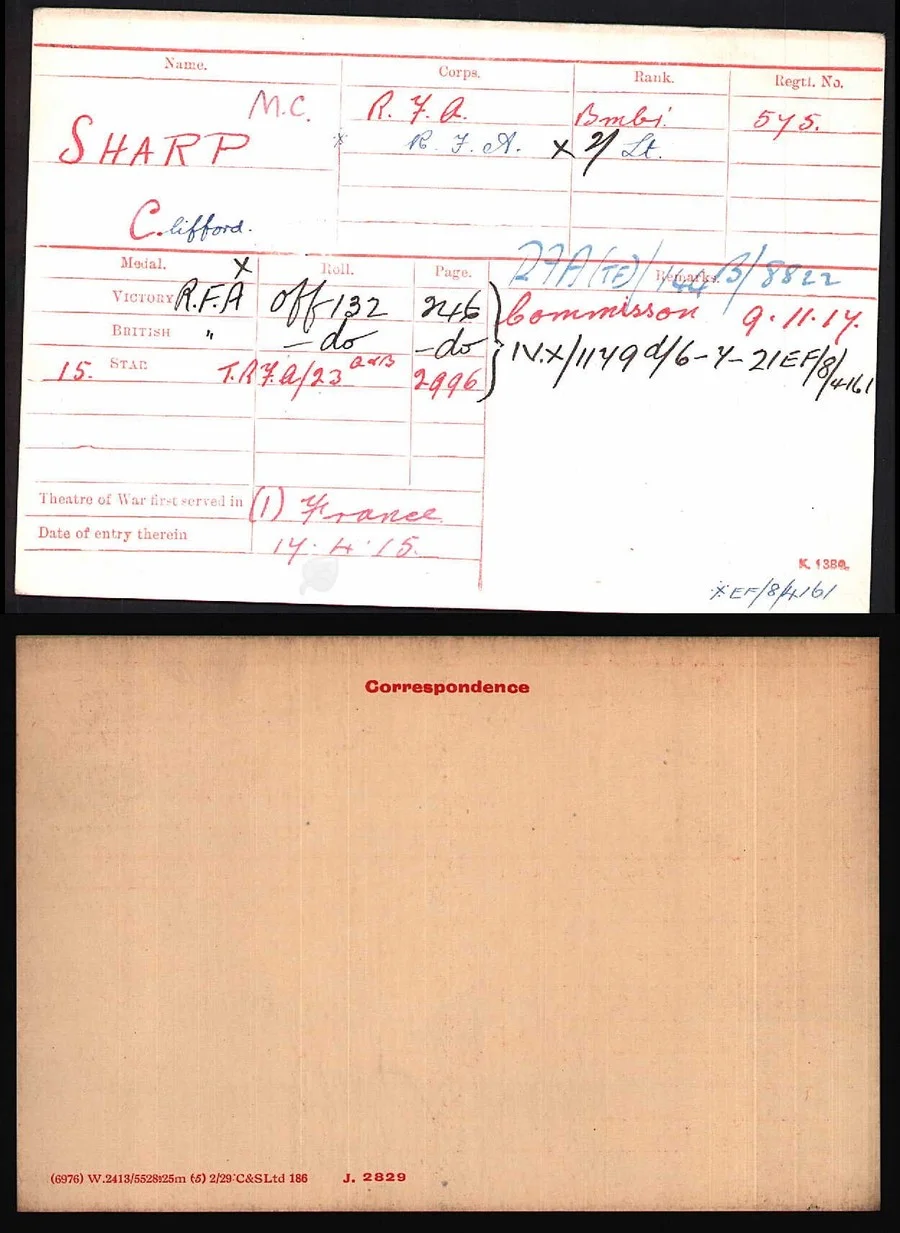 Name. Corps. Rank. Regtl. No.
M.C. R. F. A. Bmbr. 575.
SHARP x R. F. A. x 2/ Lt.
Clifford.
Medal. x Roll. Page. Remarks.
VICTORY R.F.A Off 132 246 Commission 9.11.17.
BRITISH " -do -do N.X/1179 d/6-7-21 EF/8/
15. STAR T.R.F.A/23 A&B 2996 /4161
Theatre of War first served in (1) France
Date of entry therein 17.4.15.
K. 1380.
x EF/8/4161
Correspondence
(6976) W.2413/5528 125m (5) 2/29 C&SLtd 186 J. 2829